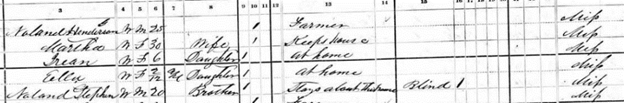 3 4 5 6 7 8 9 10 11 12 13 14 15 16 17 18
Noland Henderson W M 25 1 Farmer Miss
Martha W F 30 Wife 1 Keeps house Miss
Irean W F 6 Daughter 1 at home Miss
Ella W F Daughter 1 at home Miss
Noland Stephen W M 20 Brother 1 Stays about the house Blind 1 Miss